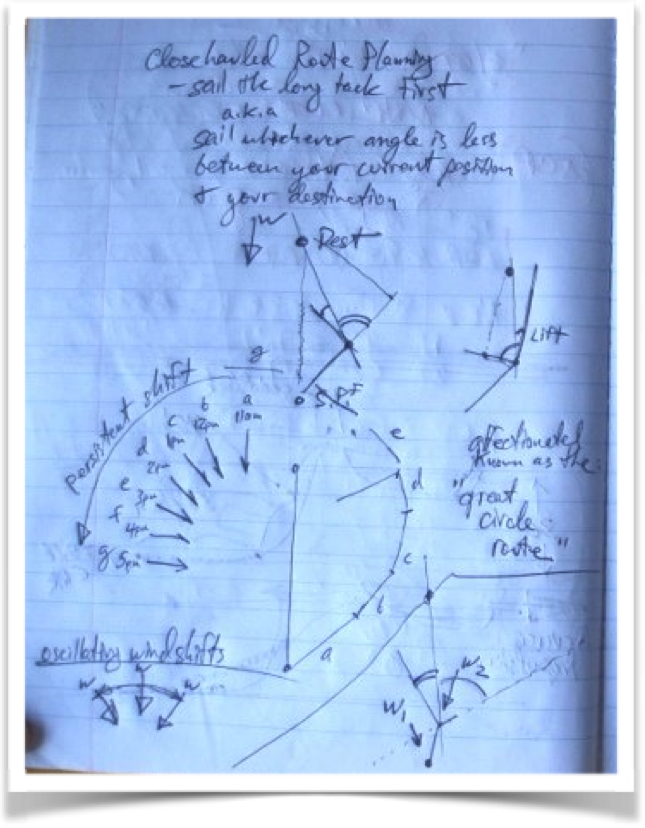 Closehauled Route Planning
- sail the long tack first
a.k.a
sail whichever angle is less
between your current position
& your destination
W
Dest
Lift
S.Pt
persistent shift
g
a
11am
b
12pm
c
1pm
d
2pm
e
3pm
f
4pm
g 5pm
e
d
c
b
a
affectionately
known as the
"great
circle
route"
oscillating windshifts
w w w
W2
W1